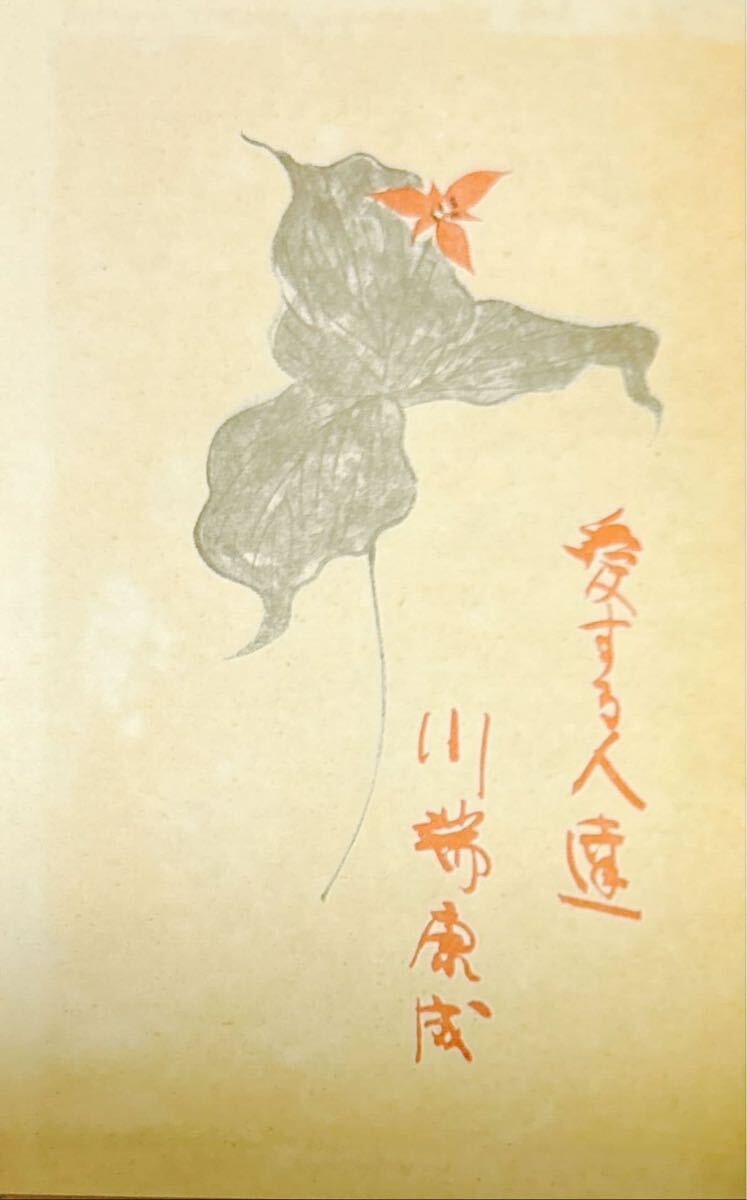 愛する人達
川端康成